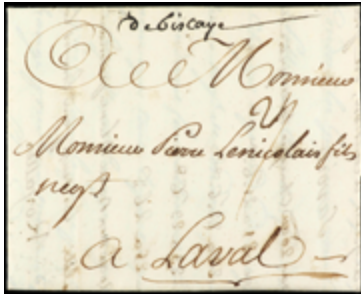 de biscaye
A Monsieur
Monsieur Pierre Lenicolais fils
negt
a Laval